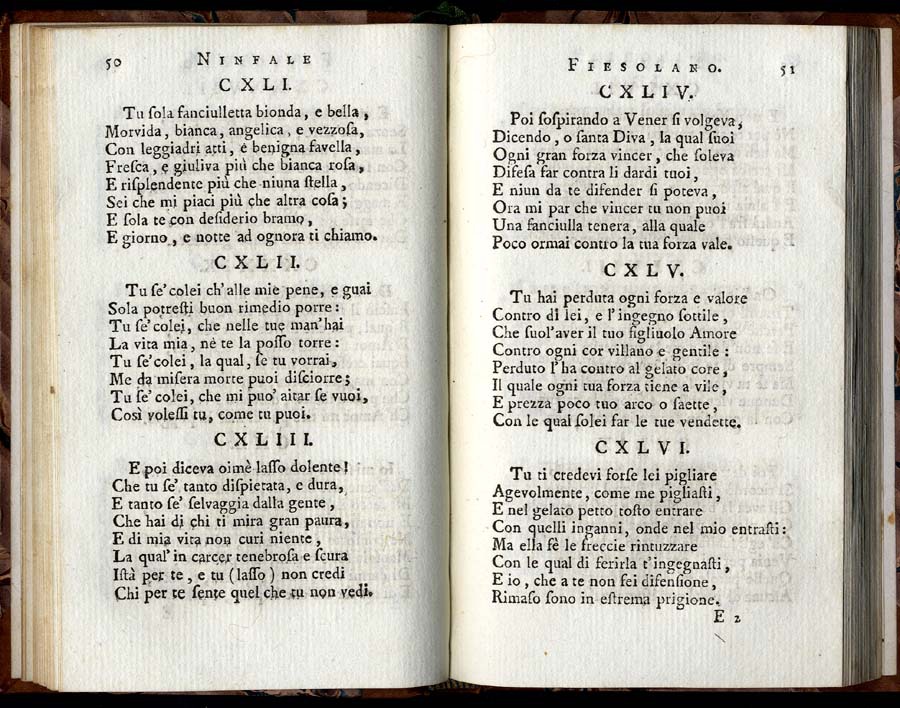 50 NINFALE
CXLI.
Tu ſola fanciulletta bionda, e bella,
Morvida, bianca, angelica, e vezzoſa,
Con leggiadri atti, e benigna favella,
Freſca, e giuliva più che bianca roſa,
E riſplendente più che niuna ſtella,
Sei che mi piaci più che altra coſa;
E ſola te con deſiderio bramo,
E giorno, e notte ad ognora ti chiamo.
CXLII.
Tu ſe' colei ch' alle mie pene, e guai
Sola potreſti buon rimedio porre:
Tu ſe' colei, che nelle tue man' hai
La vita mia, nè te la poſſo torre:
Tu ſe' colei, la qual, ſe tu vorrai,
Me da miſera morte puoi diſciorre;
Tu ſe' colei, che mi puo' aitar ſe vuoi,
Così voleſſi tu, come tu puoi.
CXLIII.
E poi diceva oimè laſſo dolente!
Che tu ſe' tanto diſpietata, e dura,
E tanto ſe' ſelvaggia dalla gente,
Che hai di chi ti mira gran paura,
E di mia vita non curi niente,
La qual' in carcer tenebroſa e ſcura
Iſtà per te, e tu (laſſo) non credi
Chi per te ſente quel che tu non vedi.
FIESOLANO. 51
CXLIV.
Poi ſoſpirando a Vener ſi volgeva,
Dicendo, o ſanta Diva, la qual ſuoi
Ogni gran forza vincer, che ſoleva
Difeſa far contra li dardi tuoi,
E niun da te difender ſi poteva,
Ora mi par che vincer tu non puoi
Una fanciulla tenera, alla quale
Poco ormai contro la tua forza vale.
CXLV.
Tu hai perduta ogni forza e valore
Contro di lei, e l' ingegno ſottile,
Che ſuol' aver il tuo figliuolo Amore
Contro ogni cor villano e gentile:
Perduto l' ha contro al gelato core,
Il quale ogni tua forza tiene a vile,
E prezza poco tuo arco o ſaette,
Con le quai ſolei far le tue vendette.
CXLVI.
Tu ti credevi forſe lei pigliare
Agevolmente, come me pigliaſti,
E nel gelato petto toſto entrare
Con quelli inganni, onde nel mio entraſti:
Ma ella fè le freccie rintuzzare
Con le qual di ferirla t' ingegnaſti,
E io, che a te non fei difenſione,
Rimaſo ſono in eſtrema prigione.
E 2